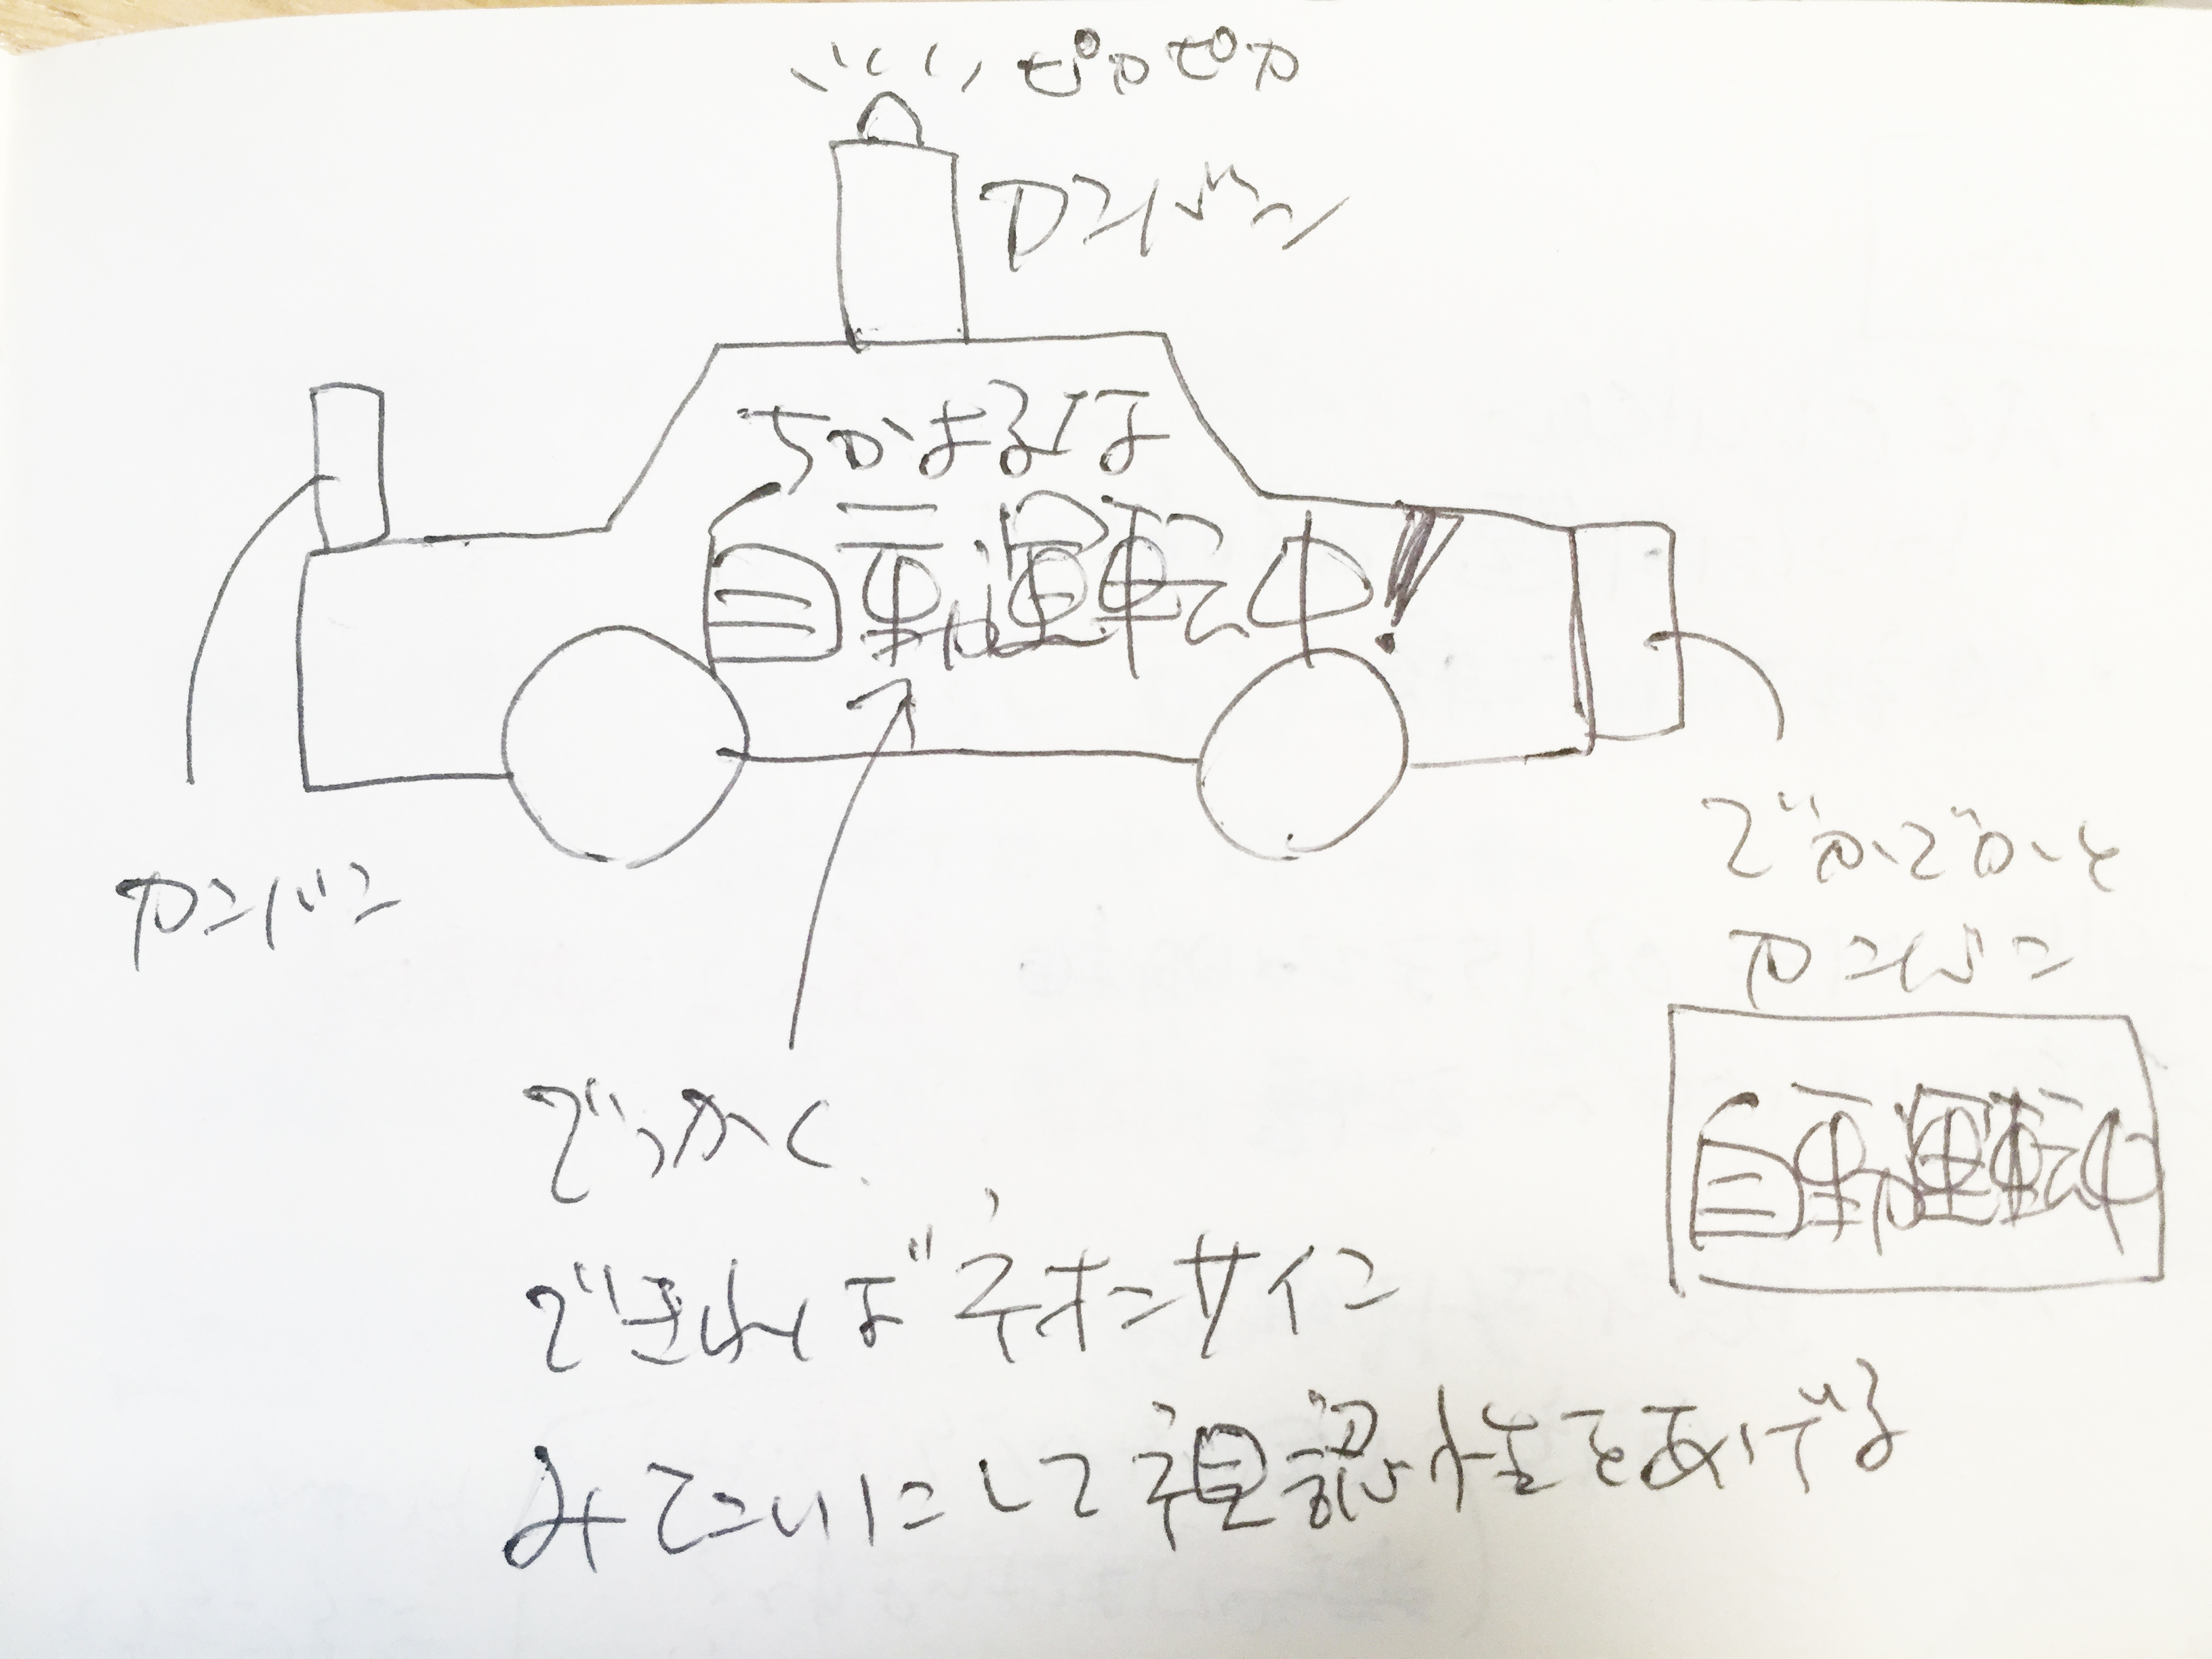 ピカピカ
カンバン
ちかよるな
自動運転中!
カンバン
でかでかと
カンバン
自動運転中
でっかく
できればネオンサイン
みたいにして視認性をあげる